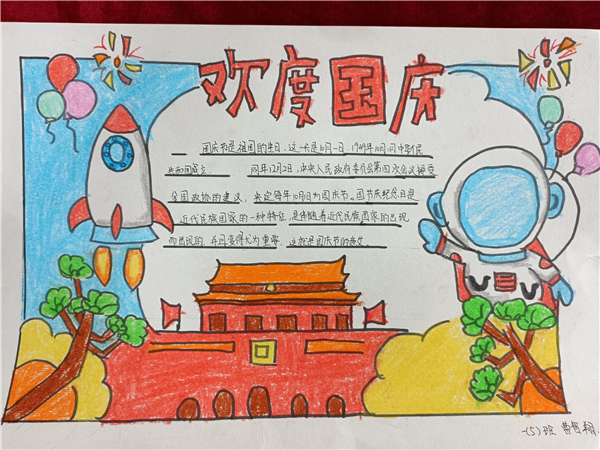 欢度国庆
国庆节是祖国的生日，这一天是10月1日，1949年10月1日中华人民
共和国成立 同年12月2日，中央人民政府委员会第四次会议接受
全国政协的建议，决定每年10月1日为国庆节。国庆纪念日是
近代民族国家的一种特征，是伴随着近代民族国家的出现
而出现的，并且变得尤为重要，这就是国庆节的含义。
一(5)班 曹哲翔